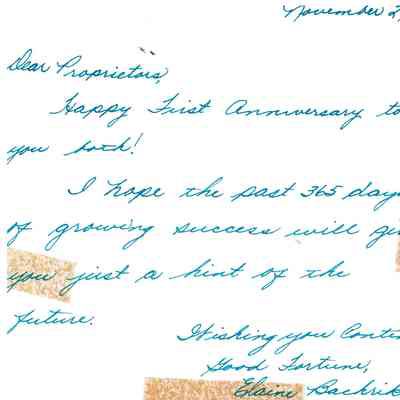 November 2,
Dear Proprietors,
Happy First Anniversary to
you both!
I hope the past 365 days
of growing success will gi
you just a hint of the
future.
Wishing you Contin
Good Fortune,
Elaine Bachrik